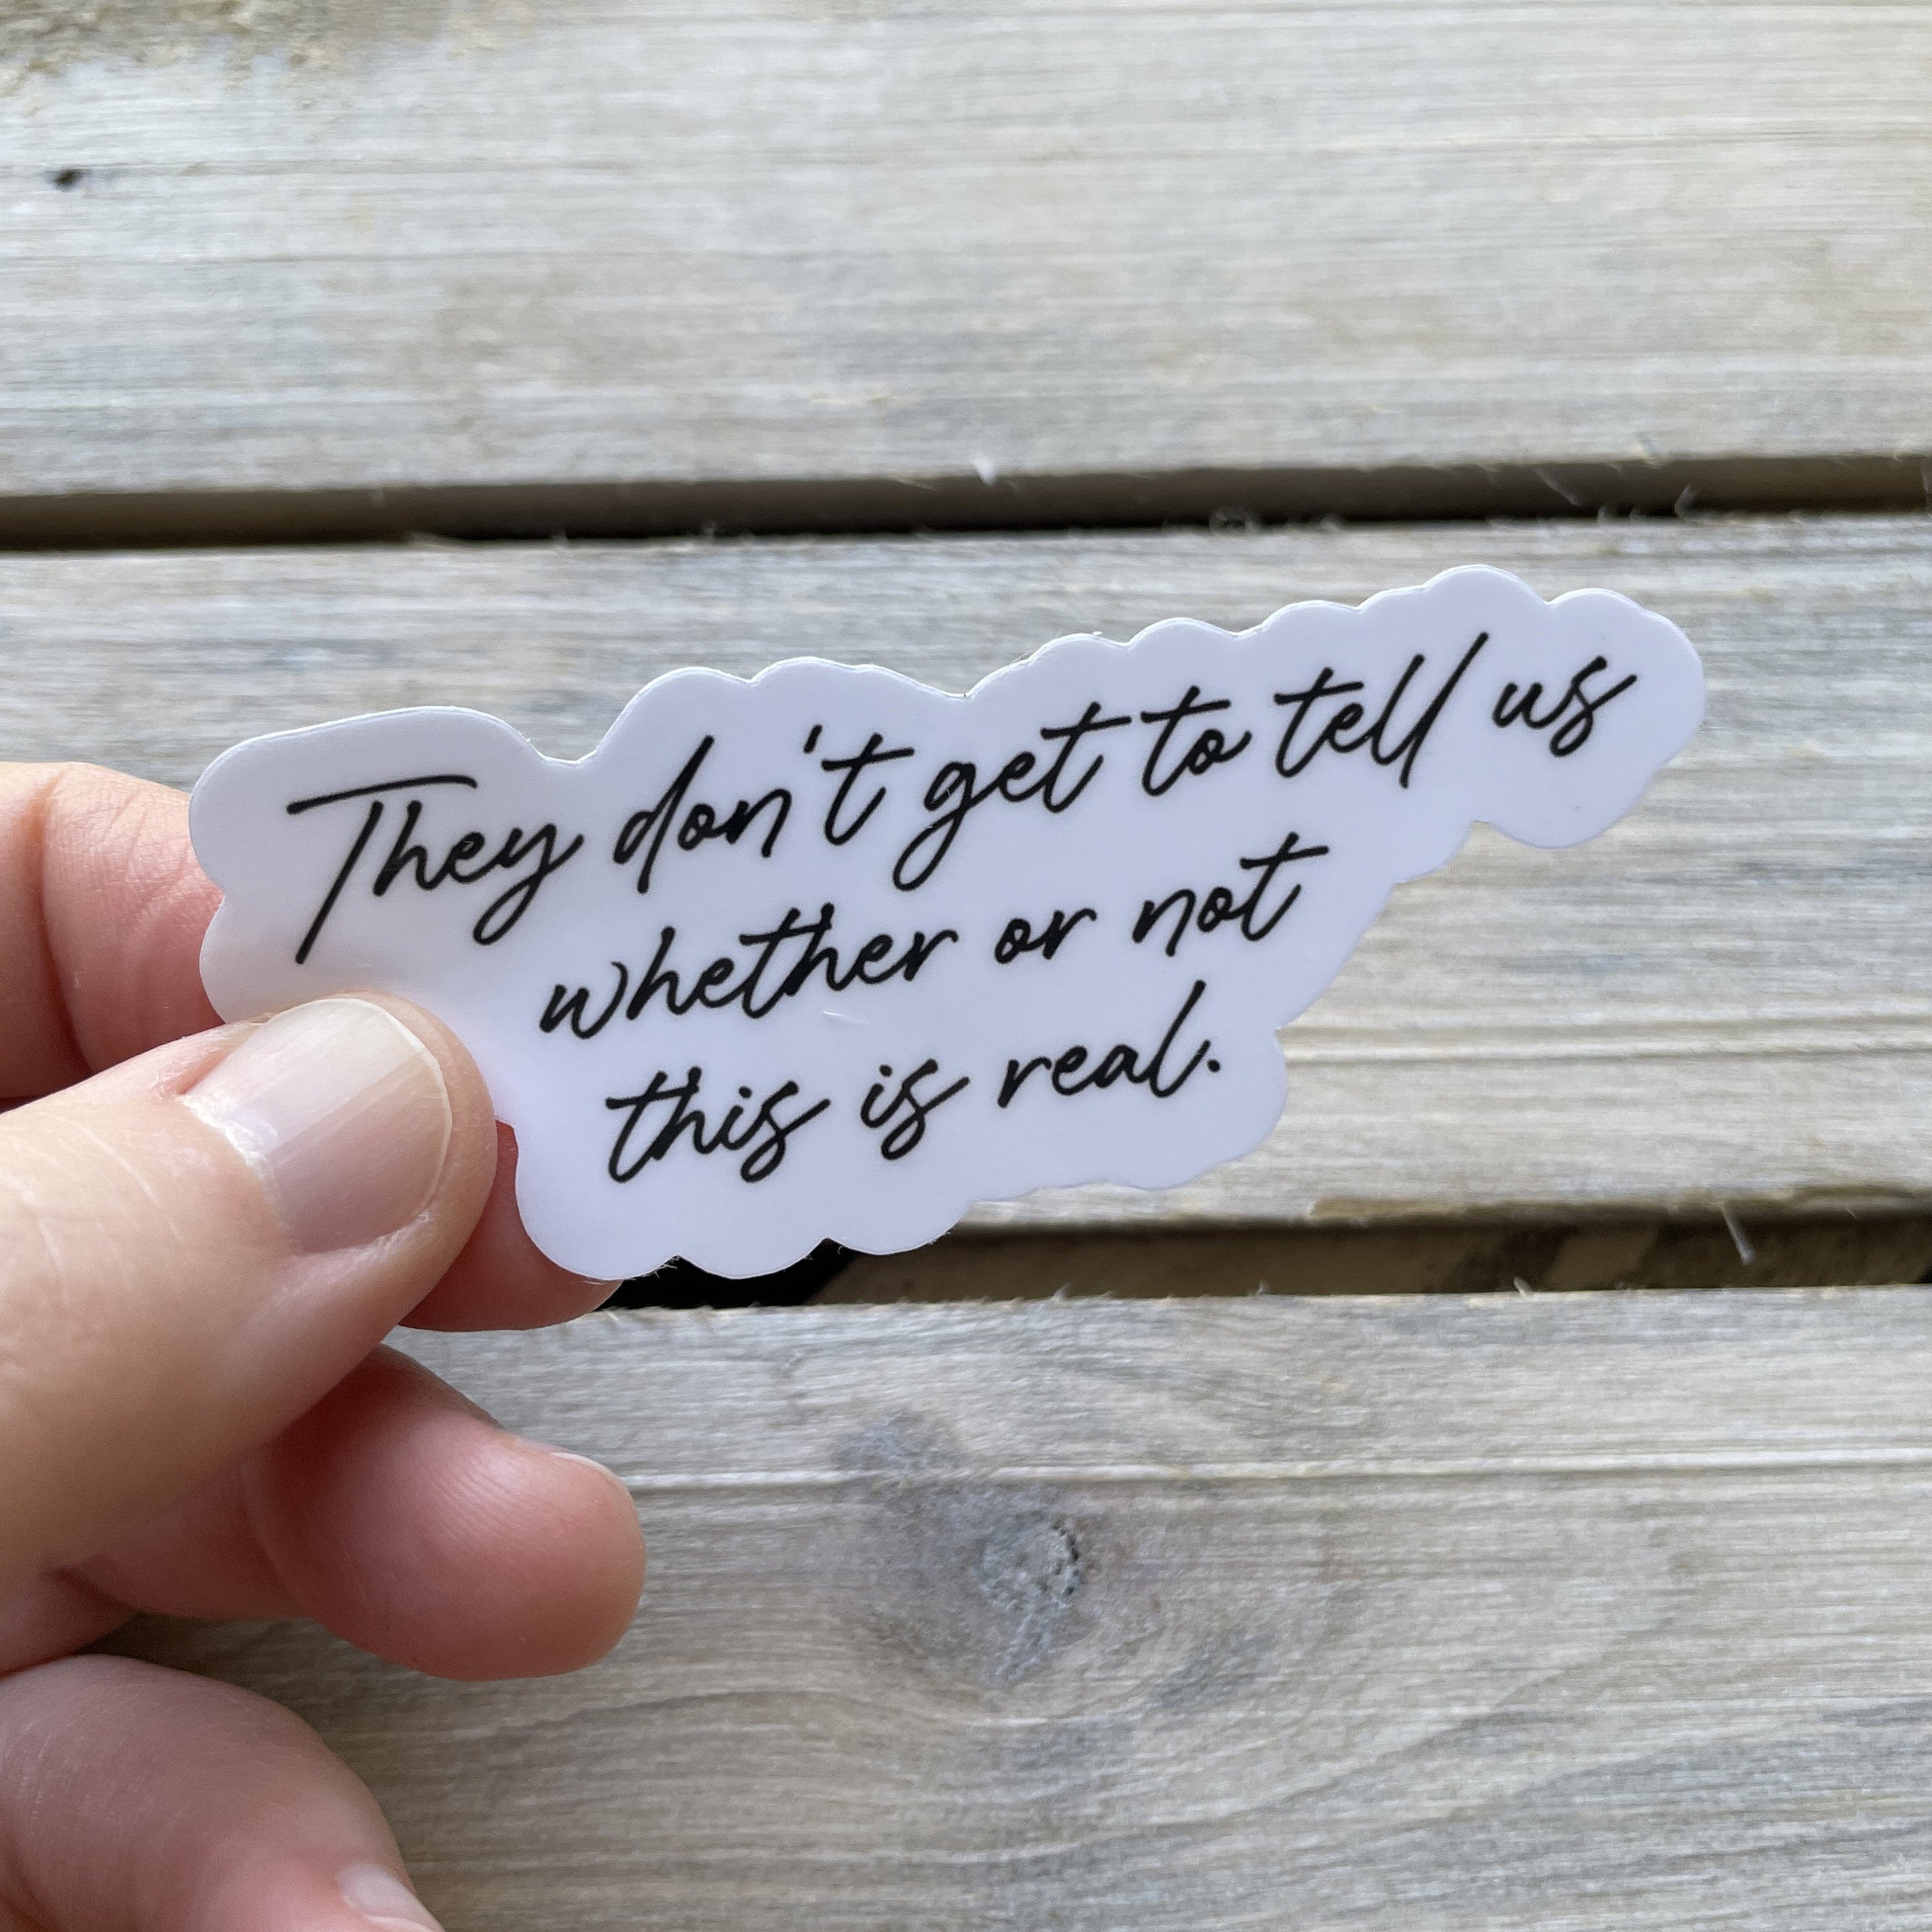 They don't get to tell us
whether or not
this is real.